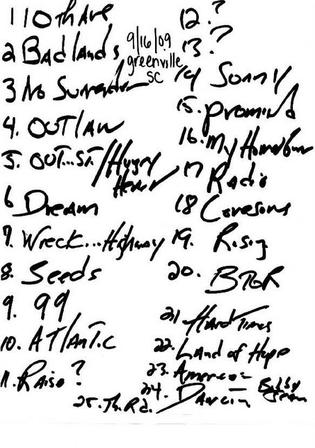 1 10th Ave
2 Badlands
9/16/09
greenville
SC
3 No Surrender
4. OUTLAW
5. OUT...ST/Hungry
Heart
6 Dream
7. Wreck...Highway
8. Seeds
9. 99
10. ATLANTIC
11. Raise?
12. ?
13. ?
14 Sunny
15. promised
16. My Hometown
17 Radio
18 Lonesome
19. Rising
20. BTOR
21 Hard Times
22. Land of Hope
23. American
24. Dancin
25. Th. Rd.